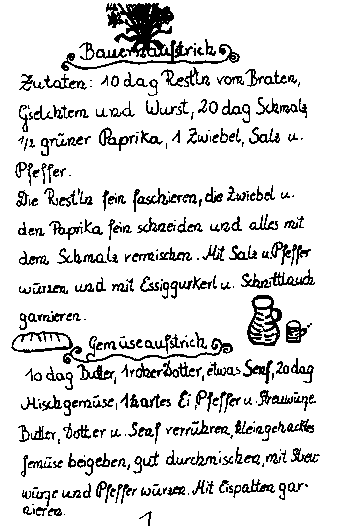 Bauernaufstrich
Zutaten: 10 dag Restln vom Braten,
Gselchtem und Wurst, 20 dag Schmalz
1/2 grüner Paprika, 1 Zwiebel, Salz u.
Pfeffer.
Die Rest'ln fein faschieren, die Zwiebel u.
den Paprika fein schneiden und alles mit
dem Schmalz vermischen. Mit Salz u. Pfeffer
würzen und mit Essiggurkerl u. Schnittlauch
garnieren.
Gemüseaufstrich
10 dag Butter, 1 roher Dotter, etwas Senf, 20 dag
Mischgemüse, 1 hartes Ei, Pfeffer u. Streuwürze.
Butter, Dotter u. Senf verrühren, kleingehacktes
Gemüse beigeben, gut durchmischen, mit Streu
würze und Pfeffer würzen. Mit Eispalten gar-
nieren.
1